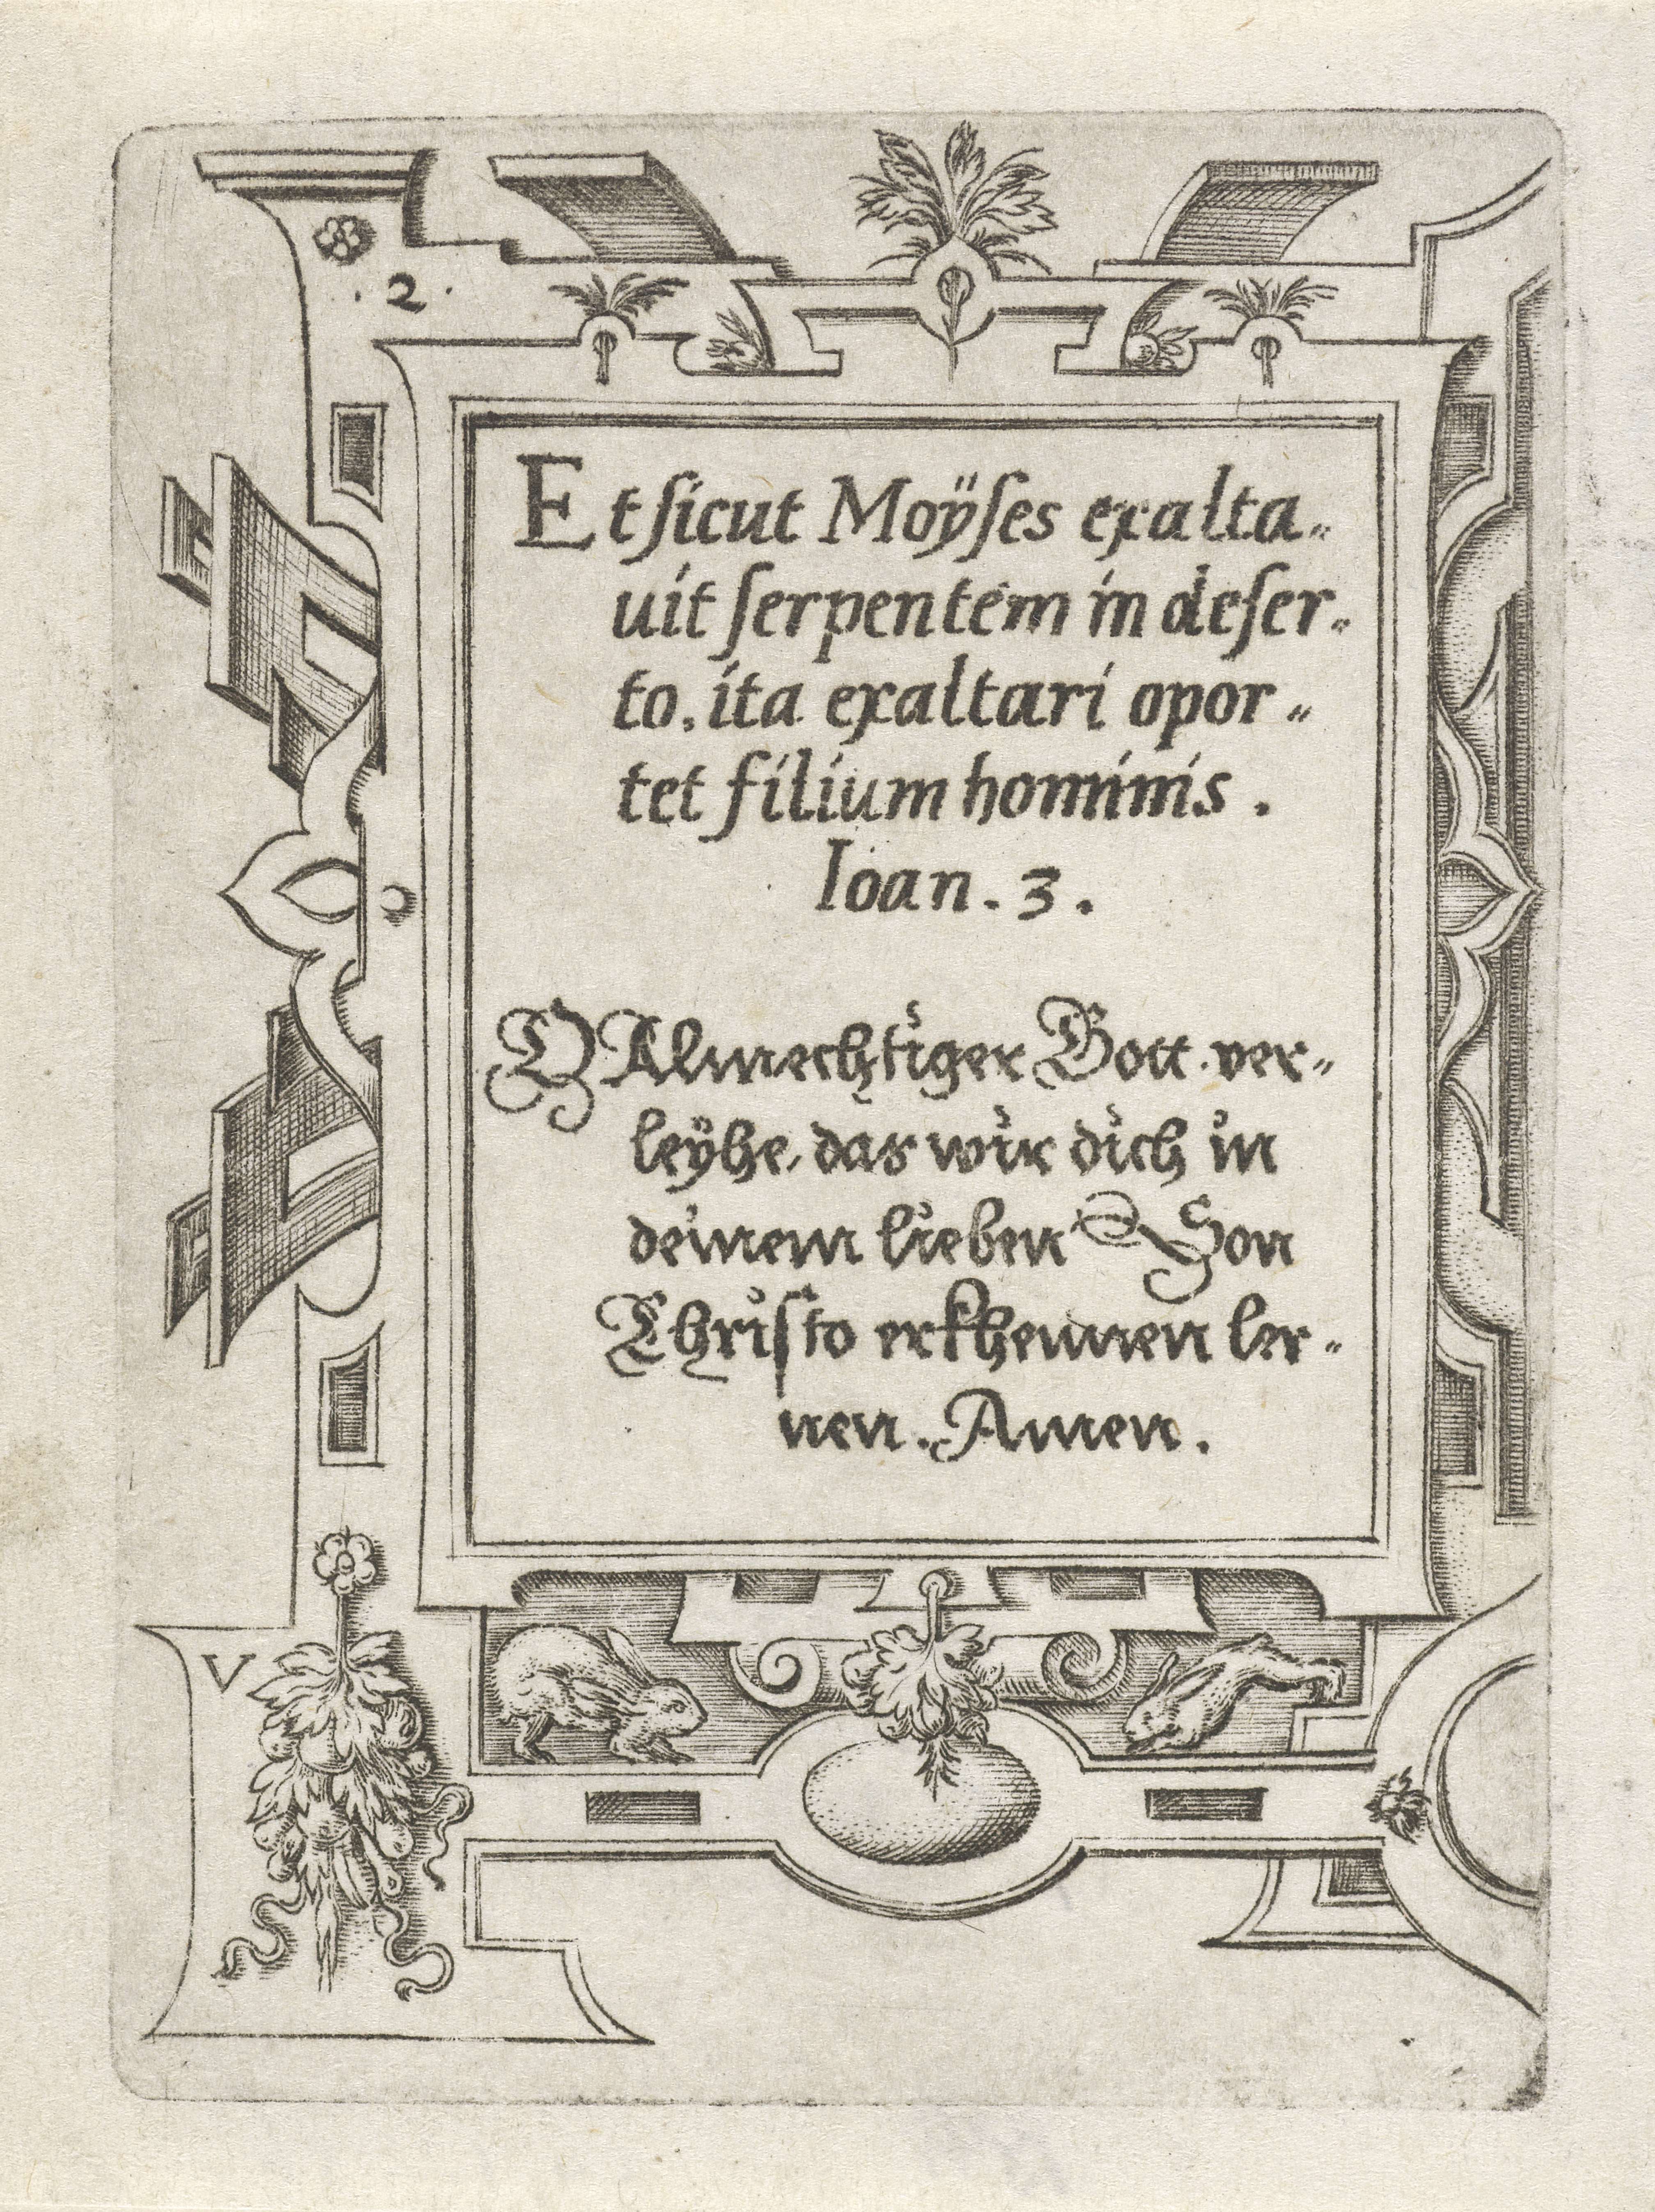 .2.
Et ſicut Moÿſes exalta„
uit ſerpentem in deſer„
to, ita exaltari opor„
tet filium hominis.
Ioan. 3.
O Almechtiger Gott ver„
leÿhe, das wir dich in
deinem lieben Son
Chriſto erkhennen ler„
nen. Amen.
V